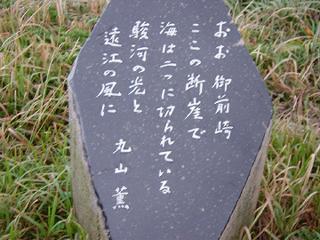 おお 御前崎
ここの断崖で
海は二つに切られている
駿河の光と
遠江の風に
丸山 薫